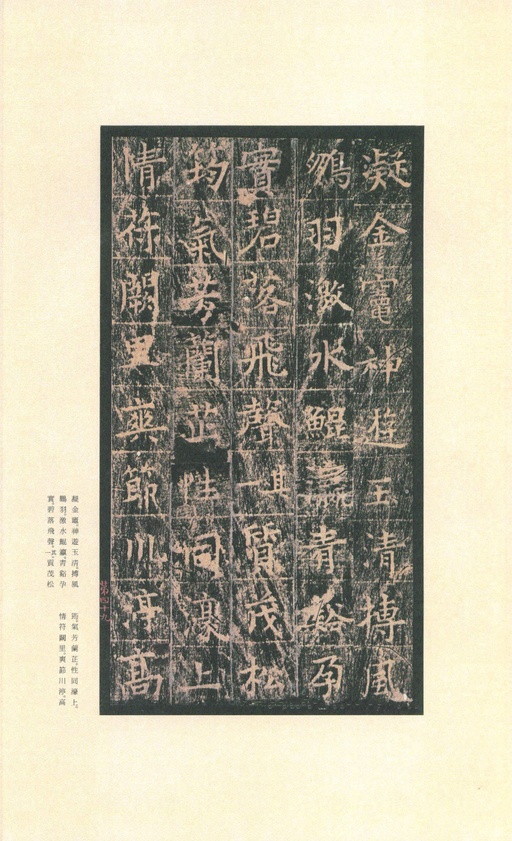 凝金竈神遊玉清摶風
鵬羽激水鯤瀛青谿孕
實碧落飛聲其一質茂松
筠氣芳蘭芷性同濠上
情符闕里爽節川渟高
凝金竈，神遊玉清。摶風
鵬羽，激水鯤瀛。青谿孕
實，碧落飛聲。其一質茂松
筠，氣芳蘭芷。性同濠上，
情符闕里。爽節川渟，高